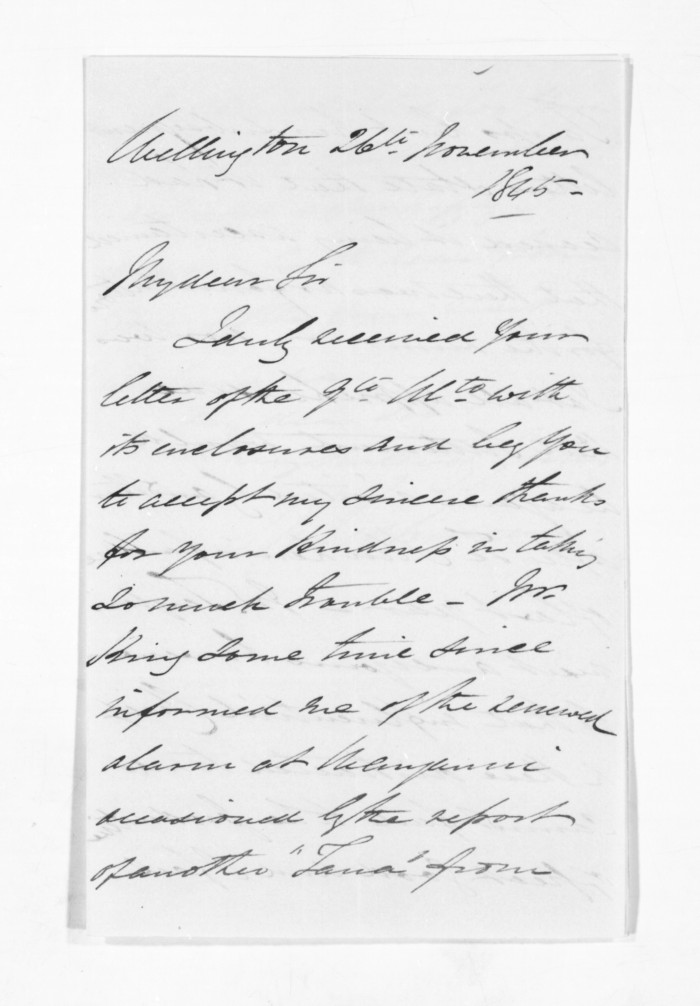 Wellington 26th November
1845-
My dear Sir
I duly received your
letter of the 9th Ulto with
its enclosures and beg you
to accept my sincere thanks
for your Kindness in taking
so much trouble - Mr.
King some time since
informed me of the renewed
alarm at Wanganui
occasioned by the report
of another "Taua" from